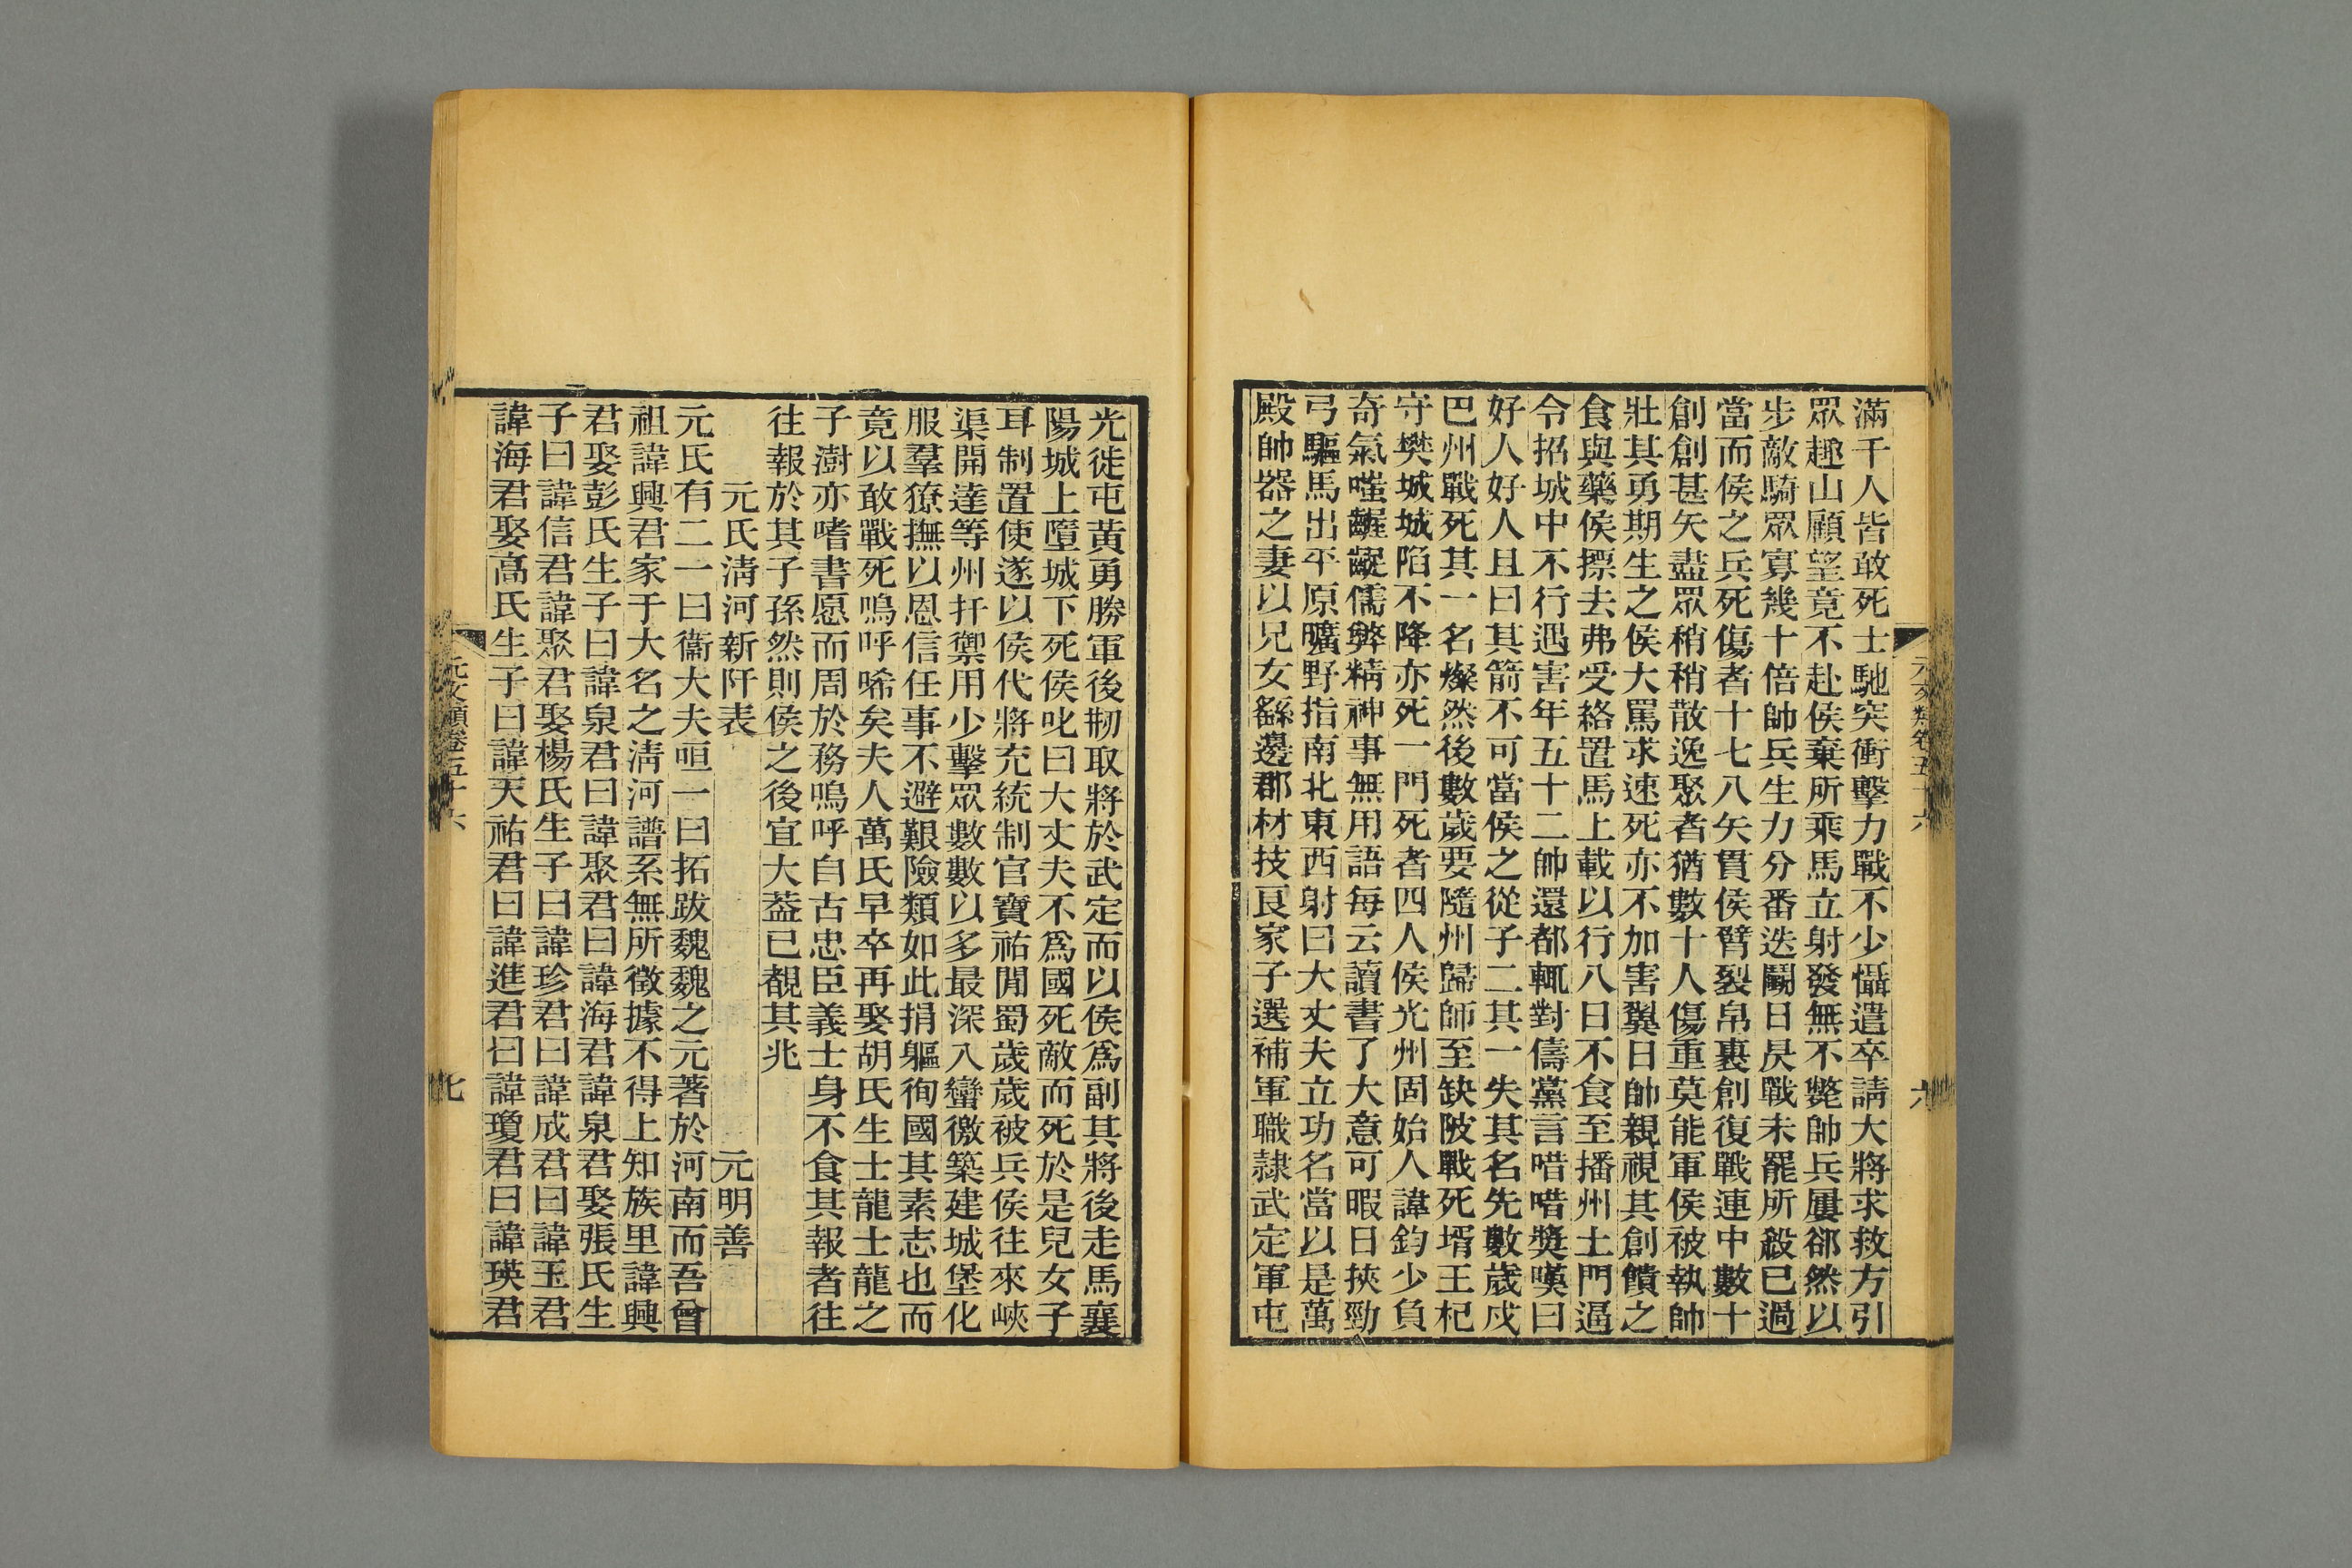 滿千人皆敢死士馳突衝擊力戰不少懾遣卒請大將求救方引
眾趣山顧望竟不赴侯棄所乘馬立射發無不斃帥兵屢郤然以
步敵騎眾寡幾十倍帥兵生力分番迭鬭日昃戰未罷所殺已過
當而侯之兵死傷者十七八矢貫侯臂裂帛裹創復戰連中數十
創創甚矢盡眾稍稍散逸聚者猶數十人傷重莫能軍侯被執帥
壯其勇期生之侯大罵求速死亦不加害翼日帥親視其創饋之
食與藥侯摽去弗受絡置馬上載以行八日不食至播州土門逼
令招城中不行遇害年五十二帥還都輒對儔黨言唶唶獎嘆曰
好人好人且曰其箭不可當侯之從子二其一失其名先數歲戍
巴州戰死其一名燦然後數歲要隨州歸師至缺陂戰死壻王杞
守樊城城陷不降亦死一門死者四人侯光州固始人諱鈞少負
奇氣嗤齷齪儒弊精神事無用語每云讀書了大意可暇日挾勁
弓驅馬出平原曠野指南北東西射曰大丈夫立功名當以是萬
殿帥器之妻以兄女繇邊郡材技良家子選補軍職隷武定軍屯
元文類卷五十六
六
光徙屯黃勇勝軍後剏取將於武定而以侯爲副其將後走馬襄
陽城上墮城下死侯叱曰大丈夫不爲國死敵而死於是兒女子
耳制置使遂以侯代將充統制官寶祐閒蜀歲歲被兵侯往來峽
渠開達等州扞禦用少擊眾數數以多最深入蠻徼築建城堡化
服羣獠撫以恩信任事不避艱險類如此捐軀徇國其素志也而
竟以敢戰死嗚呼唏矣夫人萬氏早卒再娶胡氏生士龍士龍之
子澍亦嗜書愿而周於務嗚呼自古忠臣義士身不食其報者往
往報於其子孫然則侯之後宜大葢已覩其兆
元氏淸河新阡表　元明善
元氏有二一曰衞大夫咺一曰拓跋魏魏之元著於河南而吾曾
祖諱興君家于大名之淸河譜系無所徵據不得上知族里諱興
君娶彭氏生子曰諱泉君曰諱聚君曰諱海君諱泉君娶張氏生
子曰諱信君諱聚君娶楊氏生子曰諱珍君曰諱成君曰諱玉君
諱海君娶高氏生子曰諱天祐君曰諱進君曰諱瓊君曰諱瑛君
元文類卷五十六
七